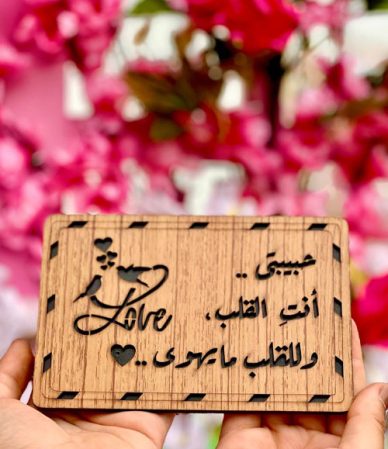 حبيبتي ..
أنتِ القلب،
وللقلب مايهوى ..
Love